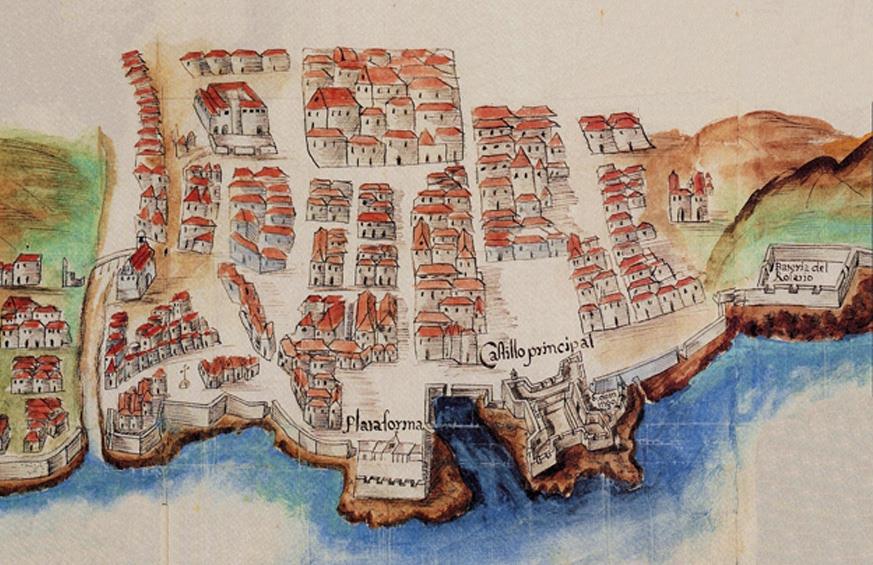 Bateria del
Rosario
Castillo principal
Plataforma